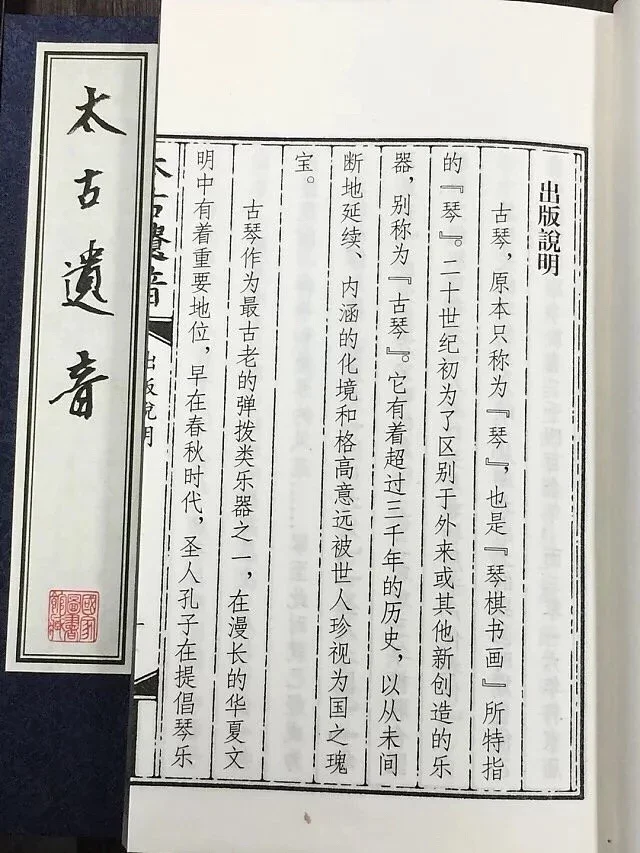 出版說明
古琴，原本只称为『琴』，也是『琴棋书画』所特指
的『琴』。二十世纪初为了区别于外来或其他新创造的乐
器，别称为『古琴』。它有着超过三千年的历史，以从未间
断地延续、内涵的化境和格高意远被世人珍视为国之瑰
宝。
古琴作为最古老的弹拨类乐器之一，在漫长的华夏文
明中有着重要地位，早在春秋时代，圣人孔子在提倡琴乐
太古遺音
出版說明
一
太古遺音
國家圖書館藏